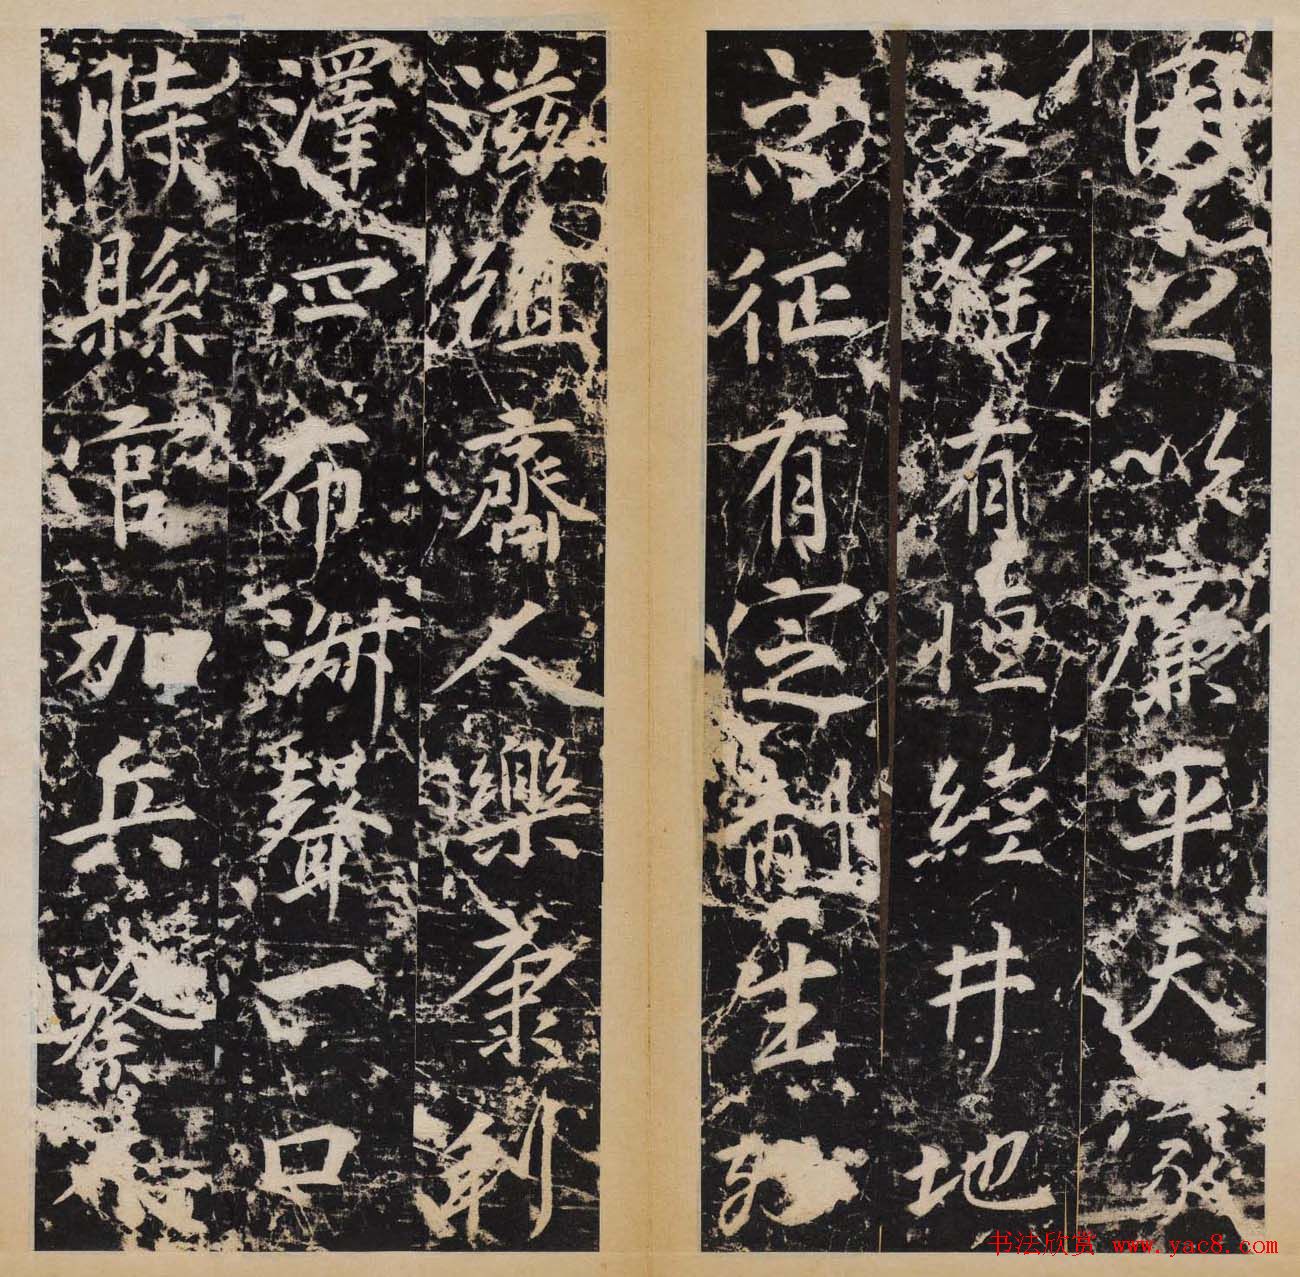 之以廉平夫家
有恒經井地
征有定制生
滋殖齊人樂康創
澤四布淋聲一口
時縣官加兵蔡
书法欣赏 www.yac8.com